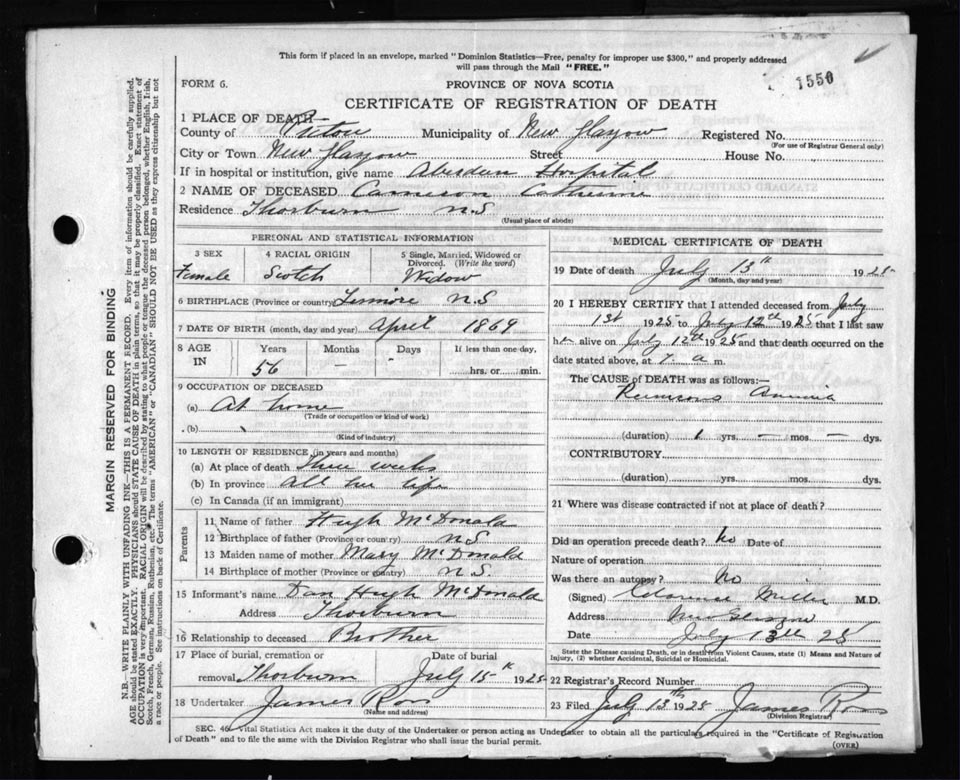 This form if placed in an envelope, marked "Dominion Statistics—Free, penalty for improper use $300," and properly addressed
will pass through the Mail "FREE."
FORM 6.
PROVINCE OF NOVA SCOTIA
1550
CERTIFICATE OF REGISTRATION OF DEATH
1 PLACE OF DEATH—
County of Pictou Municipality of New Glasgow Registered No.
(For use of Registrar General only)
City or Town New Glasgow Street House No.
If in hospital or institution, give name Aberdeen Hospital
2 NAME OF DECEASED Cameron Catherine
Residence Thorburn N.S
(Usual place of abode)
PERSONAL AND STATISTICAL INFORMATION
3 SEX 4 RACIAL ORIGIN 5 Single, Married, Widowed or Divorced. (Write the word)
Female Scotch Widow
6 BIRTHPLACE (Province or country) Lismore N.S
7 DATE OF BIRTH (month, day and year) April 1869
8 AGE IN Years Months Days If less than one day,
56 - - hrs. or min.
9 OCCUPATION OF DECEASED
(a) At home
(Trade or occupation or kind of work)
(b)
(Kind of industry)
10 LENGTH OF RESIDENCE (in years and months)
(a) At place of death three weeks
(b) In province all her life
(c) In Canada (if an immigrant)
Parents
11 Name of father Hugh McDonald
12 Birthplace of father (Province or country) N.S
13 Maiden name of mother Mary McDonald
14 Birthplace of mother (Province or country) N.S.
15 Informant's name Dan Hugh McDonald
Address Thorburn
16 Relationship to deceased Brother
17 Place of burial, cremation or Date of burial
removal Thorburn July 15th 1925
18 Undertaker James Ross
(Name and address)
MEDICAL CERTIFICATE OF DEATH
19 Date of death July 13th 1925
(Month, day and year)
20 I HEREBY CERTIFY that I attended deceased from July
1st 1925 to July 12th 1925 that I last saw
her alive on July 12th 1925 and that death occurred on the
date stated above, at 7 a m.
The CAUSE of DEATH was as follows:—
Pernicious Anemia
(duration) 1 yrs. — mos. — dys.
CONTRIBUTORY
(duration) yrs. mos. dys.
21 Where was disease contracted if not at place of death?
Did an operation precede death? no Date of
Nature of operation
Was there an autopsy? no
(Signed) Clarence Miller M.D.
Address New Glasgow
Date July 13th 25
State the Disease causing Death, or in death from Violent Causes, state (1) Means and Nature of
Injury, (2) whether Accidental, Suicidal or Homicidal.
22 Registrar's Record Number
23 Filed July 13th 1925 James Ross
(Division Registrar)
SEC. 46 Vital Statistics Act makes it the duty of the Undertaker or person acting as Undertaker to obtain all the particulars required in the "Certificate of Registration
of Death" and to file the same with the Division Registrar who shall issue the burial permit.
(OVER)
MARGIN RESERVED FOR BINDING
N.B.—WRITE PLAINLY WITH UNFADING INK—THIS IS A PERMANENT RECORD. Every item of information should be carefully supplied.
AGE should be stated EXACTLY. PHYSICIANS should STATE CAUSE OF DEATH in plain terms, so that it may be properly classified. Exact statement of
OCCUPATION is very important. RACIAL ORIGIN will be described by stating to what people or tongue the deceased person belonged, whether English, Irish,
Scotch, French, German, Russian, Ruthenian, etc. The terms "AMERICAN" or "CANADIAN" SHOULD NOT BE USED as they express citizenship but not
a race or people. See instructions on back of Certificate.